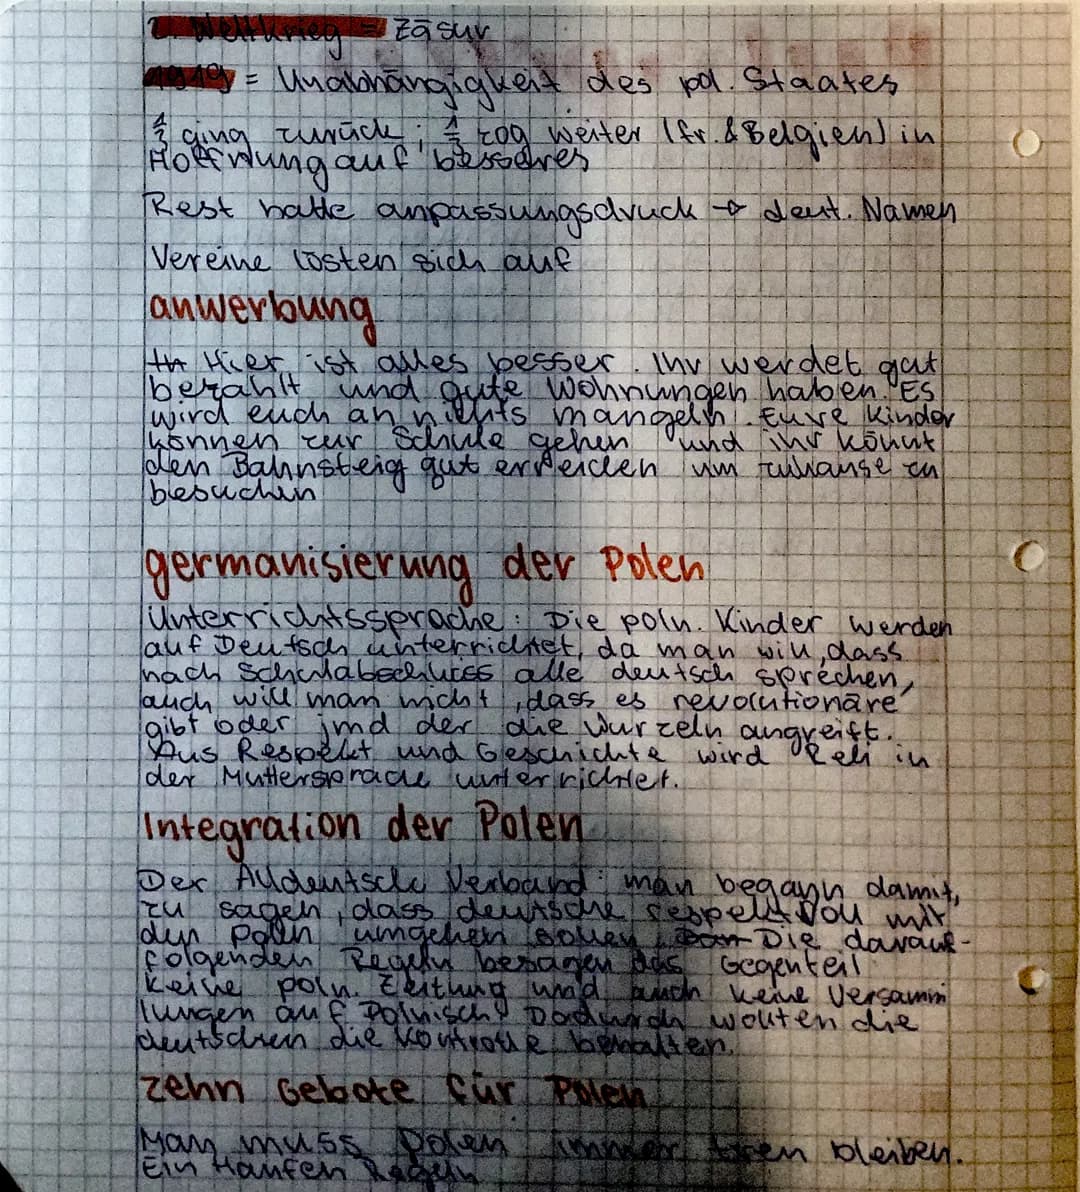 2. Weltkrieg = Zäsur
1919 = Unabhängigkeit des pol. Staates
1/3 ging zurück; 1/3 zog weiter (fr. & Belgien) in
Hoffnung auf besseres
Rest hatte anpassungsdruck → deut. Namen
Vereine lösten sich auf
anwerbung
Hier ist alles besser. Ihr werdet gut
bezahlt und gute Wohnungen haben. Es
wird euch an nichts mangeln. Eure Kinder
können zur Schule gehen und ihr könnt
den Bahnsteig gut erreichen um zuhause zu
besuchen
germanisierung der Polen
Unterrichtssprache: Die poln. Kinder werden
auf Deutsch unterrichtet, da man will, dass
nach Schulabschluss alle deutsch sprechen,
auch will man nicht, dass es revolutionäre
gibt oder jmd der die Wurzeln angreift.
Aus Respekt und Geschichte wird Reli in
der Muttersprache unterrichtet.
Integration der Polen
Der Alldeutsche Verband: man begann damit,
zu sagen, dass deutsche respektvoll mit
den Polen umgehen sollen. Die darauf-
folgenden Regeln besagen das Gegenteil
Keine poln. Zeitung und auch keine Versamm
lungen auf Polnisch! Dadurch wollten die
deutschen die Kontrolle behalten.
zehn Gebote für Polen
Man muss Polen immer treu bleiben.
Ein Haufen Regeln